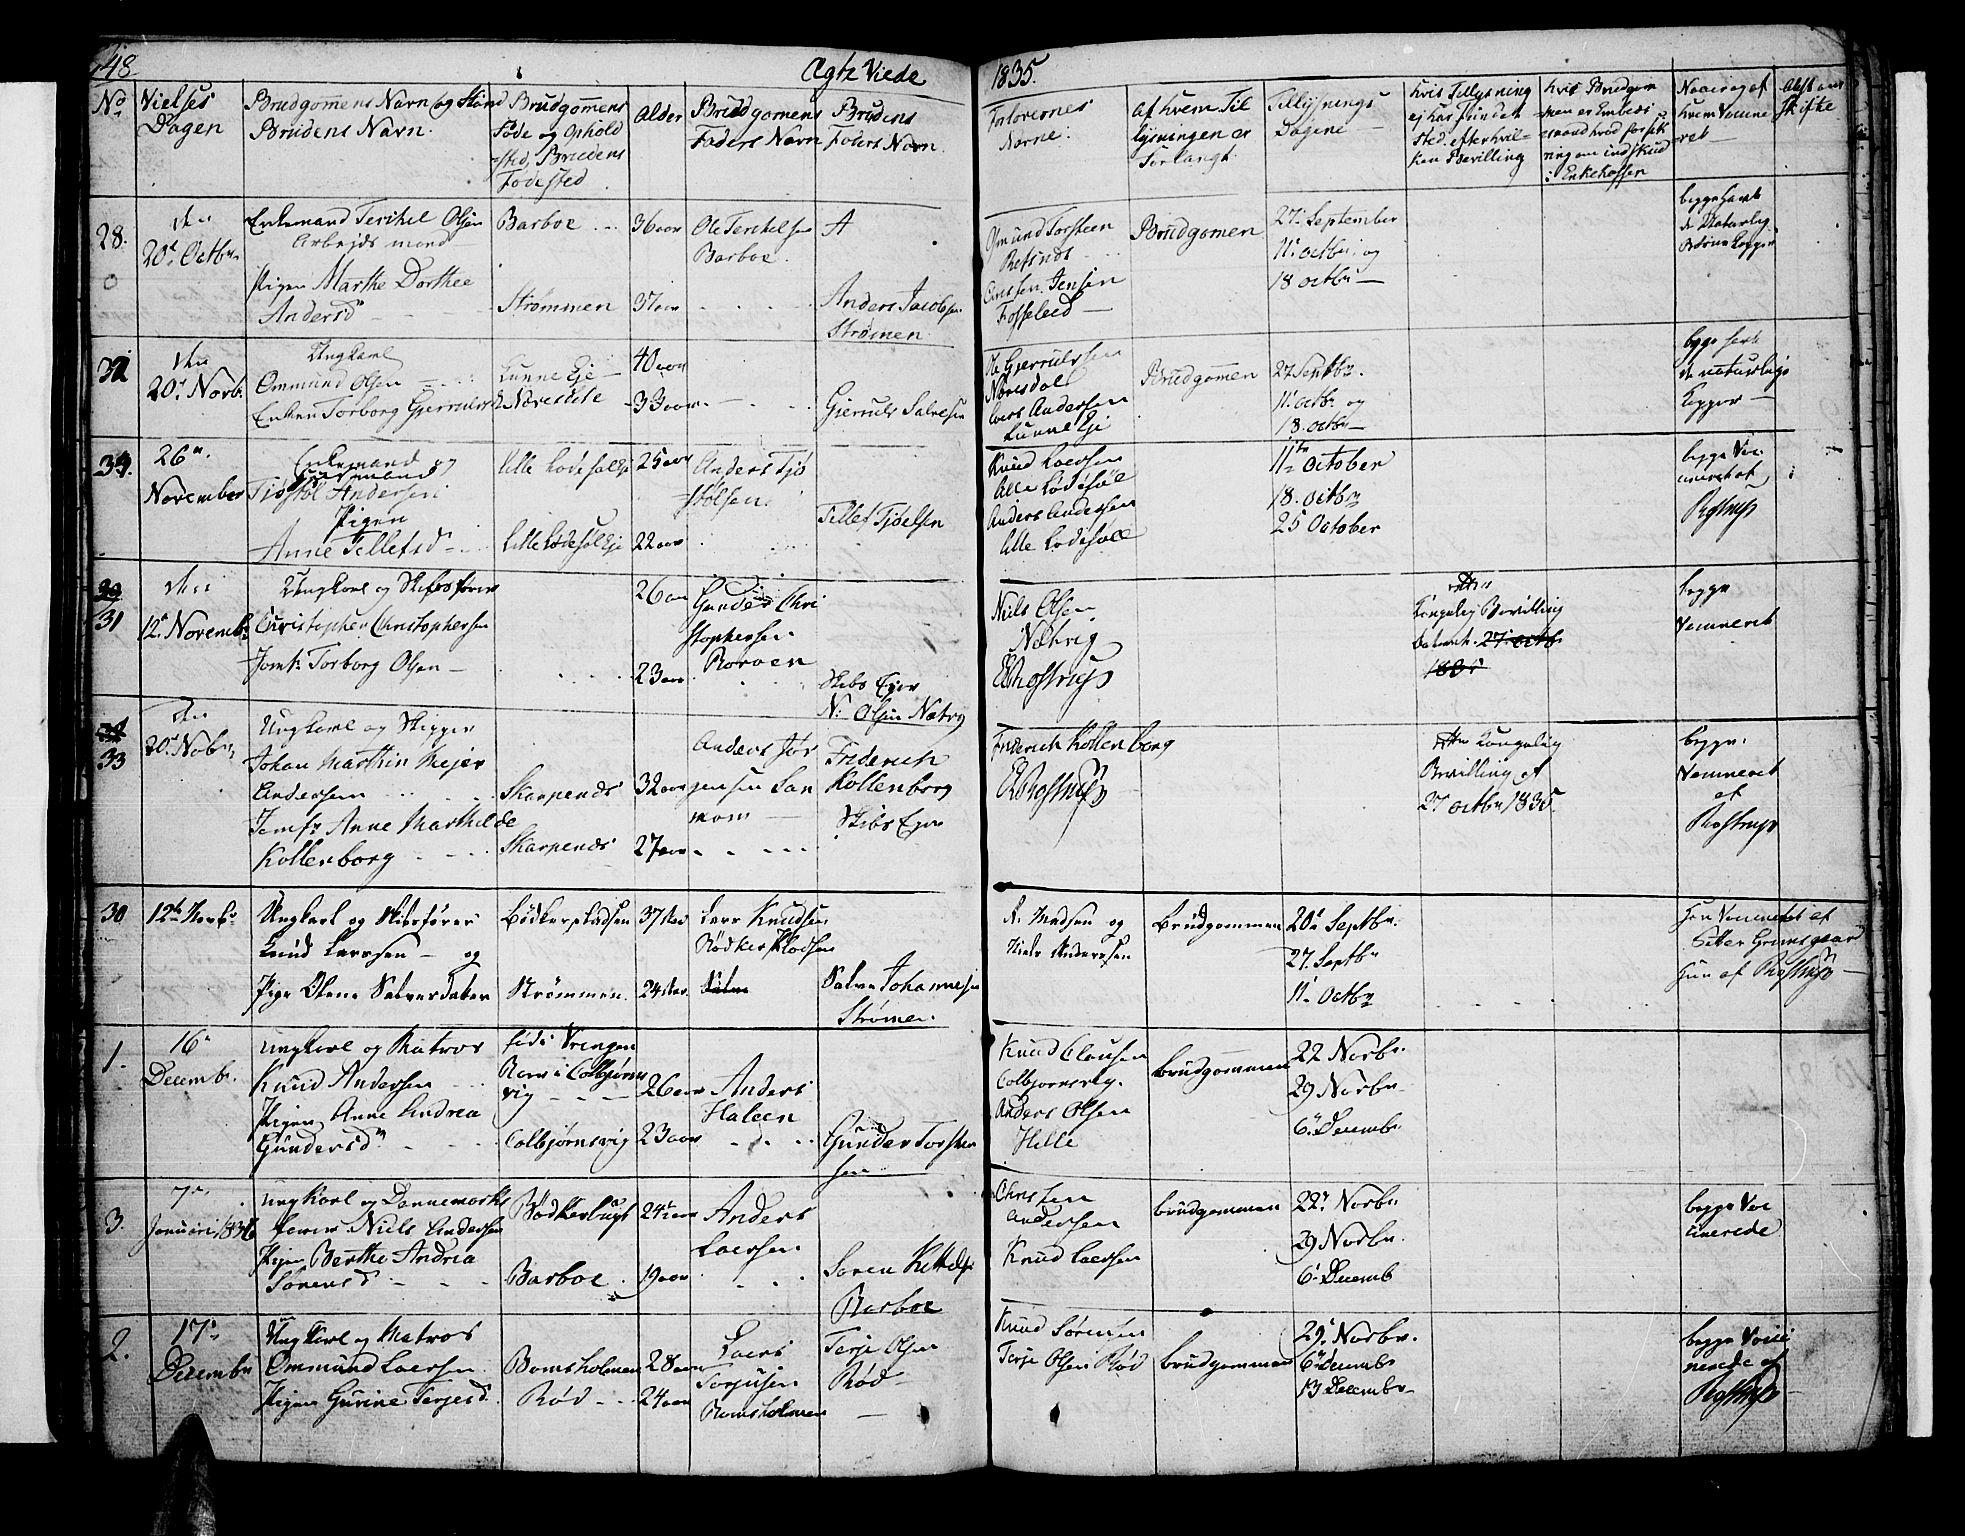 148
Ægte Viede
1835.
No
Vielses
Dagen
Brudgomens Navn og Stand
Brudens Navn.
Brudgomens
Føde og Ophold
sted, Brudens
Fødested
Alder
Brudgomens
Faders Navn
Brudens
Faders Navn.
Forlovernes
Navne.
Af hvem Til
lysningen er
forlangt.
Tillysnings
Dagene
hvis Tillysning
ej har fundet
sted efter hvil-
ken Bevilling
hvis Brudgom
men er Embeds
mand hvad forsik
ring om indskud
i Enkekassen
Naar og af
hvem Vaccine
ret
Skifte
28.
den
20de Octbr
Enkemand Terkel Olsen
Arbejdsmand
Pigen Marthe Dorthea
Andersd
Barboe
Strømmen
36 aar
37 aar
Ole Terkelsen
Barboe.
Anders Jacobsen
Strømen.
Osmund Torsteen
Jensen
Fosseleed
Brudgomen
27. September
11. octbr. og
18 octbr
begge havt
de Naturlig
Børne Kopper
32
den
20de Novb.
Ungkarl
Ommund Olsen
Enken Torborg Gjeruls
Lunne Eje
Nævesdale
40 aar
33 aar
Gjeruls Salvesen
Ole Gjerulssen
Nævesdal
Lars Andersen
Lunne Eje
Brudgomen
27 Septbr.
11. octbr og
18. octbr
begge havt
de naturlige
Kopper
34.
26de
November
Enkemand og
Tjøstøl Andersen
Pigen
Anne Tellefsd
Lille Lodesøl Eje
Lille Lodesøl Eje
25 aar
22 aar
Anders Tjø
stølsen
Tellef Tjøelsen
Knud Laersen
Lille Lodesøl
Anders Andersen
Lille Lodesøll
11te October
18. octbr
25 October
begge Vac
cineret af
Rostrup
29
31
den
12te Novemb.
Ungkarl og Skibsfører
Christopher Christophersen
Jomf. Torborg Olsen
26 aar
23 aar
Gunder Chri
stophersen
Roroen
Skibs Ejer
N. Olsen Natvig
Niels Olsen
Natvig
Rostrup
Kongelig Bevilling
27 octb.
1835
begge
Vaccineret
33
den
20de Nobr
Ungkarl og Skipper
Johan Marthin Mejer
Andersen
Jomfr Anne Marthilde
Kollenborg
Skarpenes
Skarpenes
32 aar
27 aar
Anders Jør
gensen San
mom
Friderich
Kollenborg
Skibs Ejer
Friderich Kollenborg
Rostrup
Kongelig
Bevilling af
27 octbr 1835
begge
Vaccineret
af
Rostrup
30
12te Novbr
Ungkarl og Skibsfører
Knud Larsen og
Pige Olene Salvesdatter
Bödkerpladsen
Strømmen.
37 Aar
24 Aar.
Lars Knudsen
Bødkerpladsen
Salve
Salve Johannesen
Strømen.
A. Madsen og
Niels Anderssen
Brudgommen
20de Septbr.
27. Septbr
11. Octbr
han Vaccineret af
Sitter Grimsgaard
hun af Rostrup
1.
16de
Decembr.
Ungkarl og Matros
Knud Andersen
Pigen Anne Andrea
Gundersdr
født Vrengen
Boer i Colbjørns
vig
Colbjørnsvig
26 aar
23 aar
Anders
Haleen
Gunder Torsten
sen
Knud Clausen
Colbjørnsvig.
Anders Olsen
Hille
Brudgommen
22 Novbr.
29 Novbr
6te Decembr.
3.
7de
Januari 1836
Ungkarl og Dannemarks
farer Niels Andersen
Pigen Berthe Andrea
Sørensd
Bødkerbugt
Barboe
24 aar
19 aar
Anders
Laersen
Søren Kittels
Barboe
Christen
Andersen
Knud Laersen
Brudgommen
22de Novbr
29 Novbr.
6te Decemb
begge Vac
cinerede
2.
17de
Decembr
Ungkarl og Matros
Ommund Laersen
Pigen Gurine Terjesd
Romsholmen
Rød
28 aar
24 aar
Laers
Torjusen
Romsholmen
Terje Olsen
Rød
Knud Sørensen
Terje Olsen Rød
Brudgommen
29. Novbr.
6te Decembr
13 Decembr
begge Vacci
nerede af
Rostrup